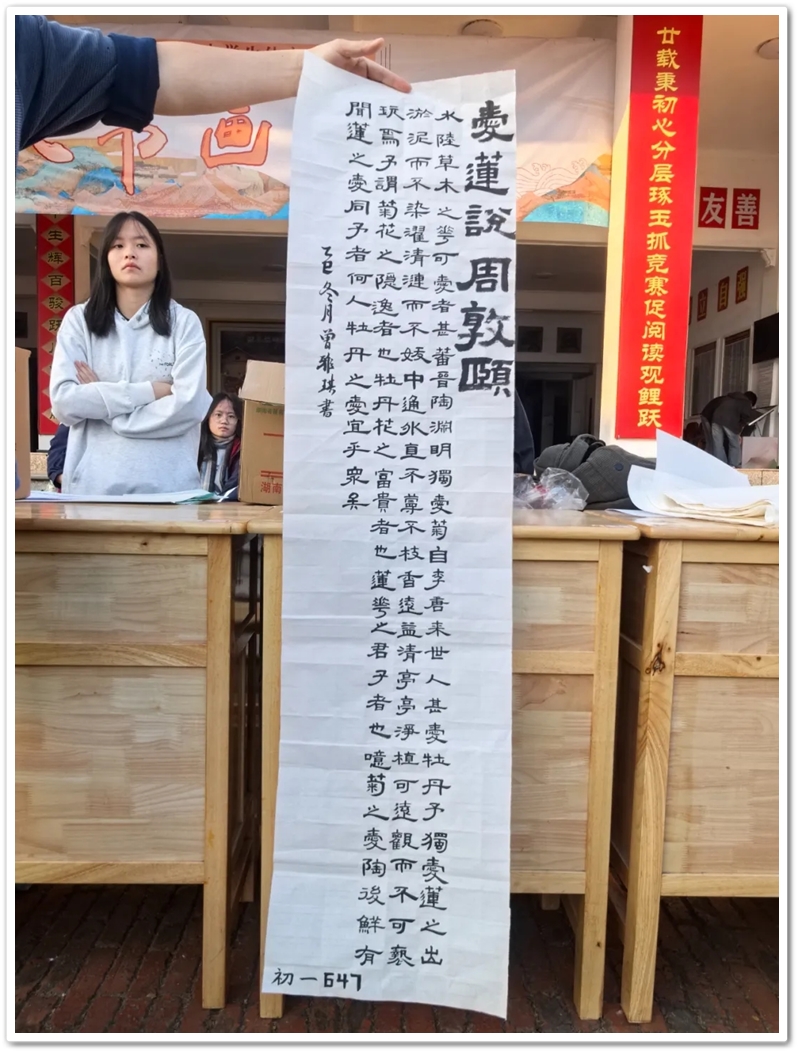 愛蓮說 周敦頤
水陸草木之華可愛者甚蕃晉陶淵明獨愛菊自李唐来世人甚愛牡丹予獨愛蓮之出
淤泥而不染濯清漣而不妖中通外直不蔓不枝香遠益清亭亭淨植可遠觀而不可褻
玩焉予謂菊花之隱逸者也牡丹花之富貴者也蓮華之君子者也噫菊之愛陶後鮮有
聞蓮之愛同予者何人牡丹之愛宜乎眾矣
乙巳冬月曾雅琪書
初一647
廿载秉初心分层琢玉抓竞赛促阅读观鲤跃
友善
自强
书画
生辉百骏跃
湖南